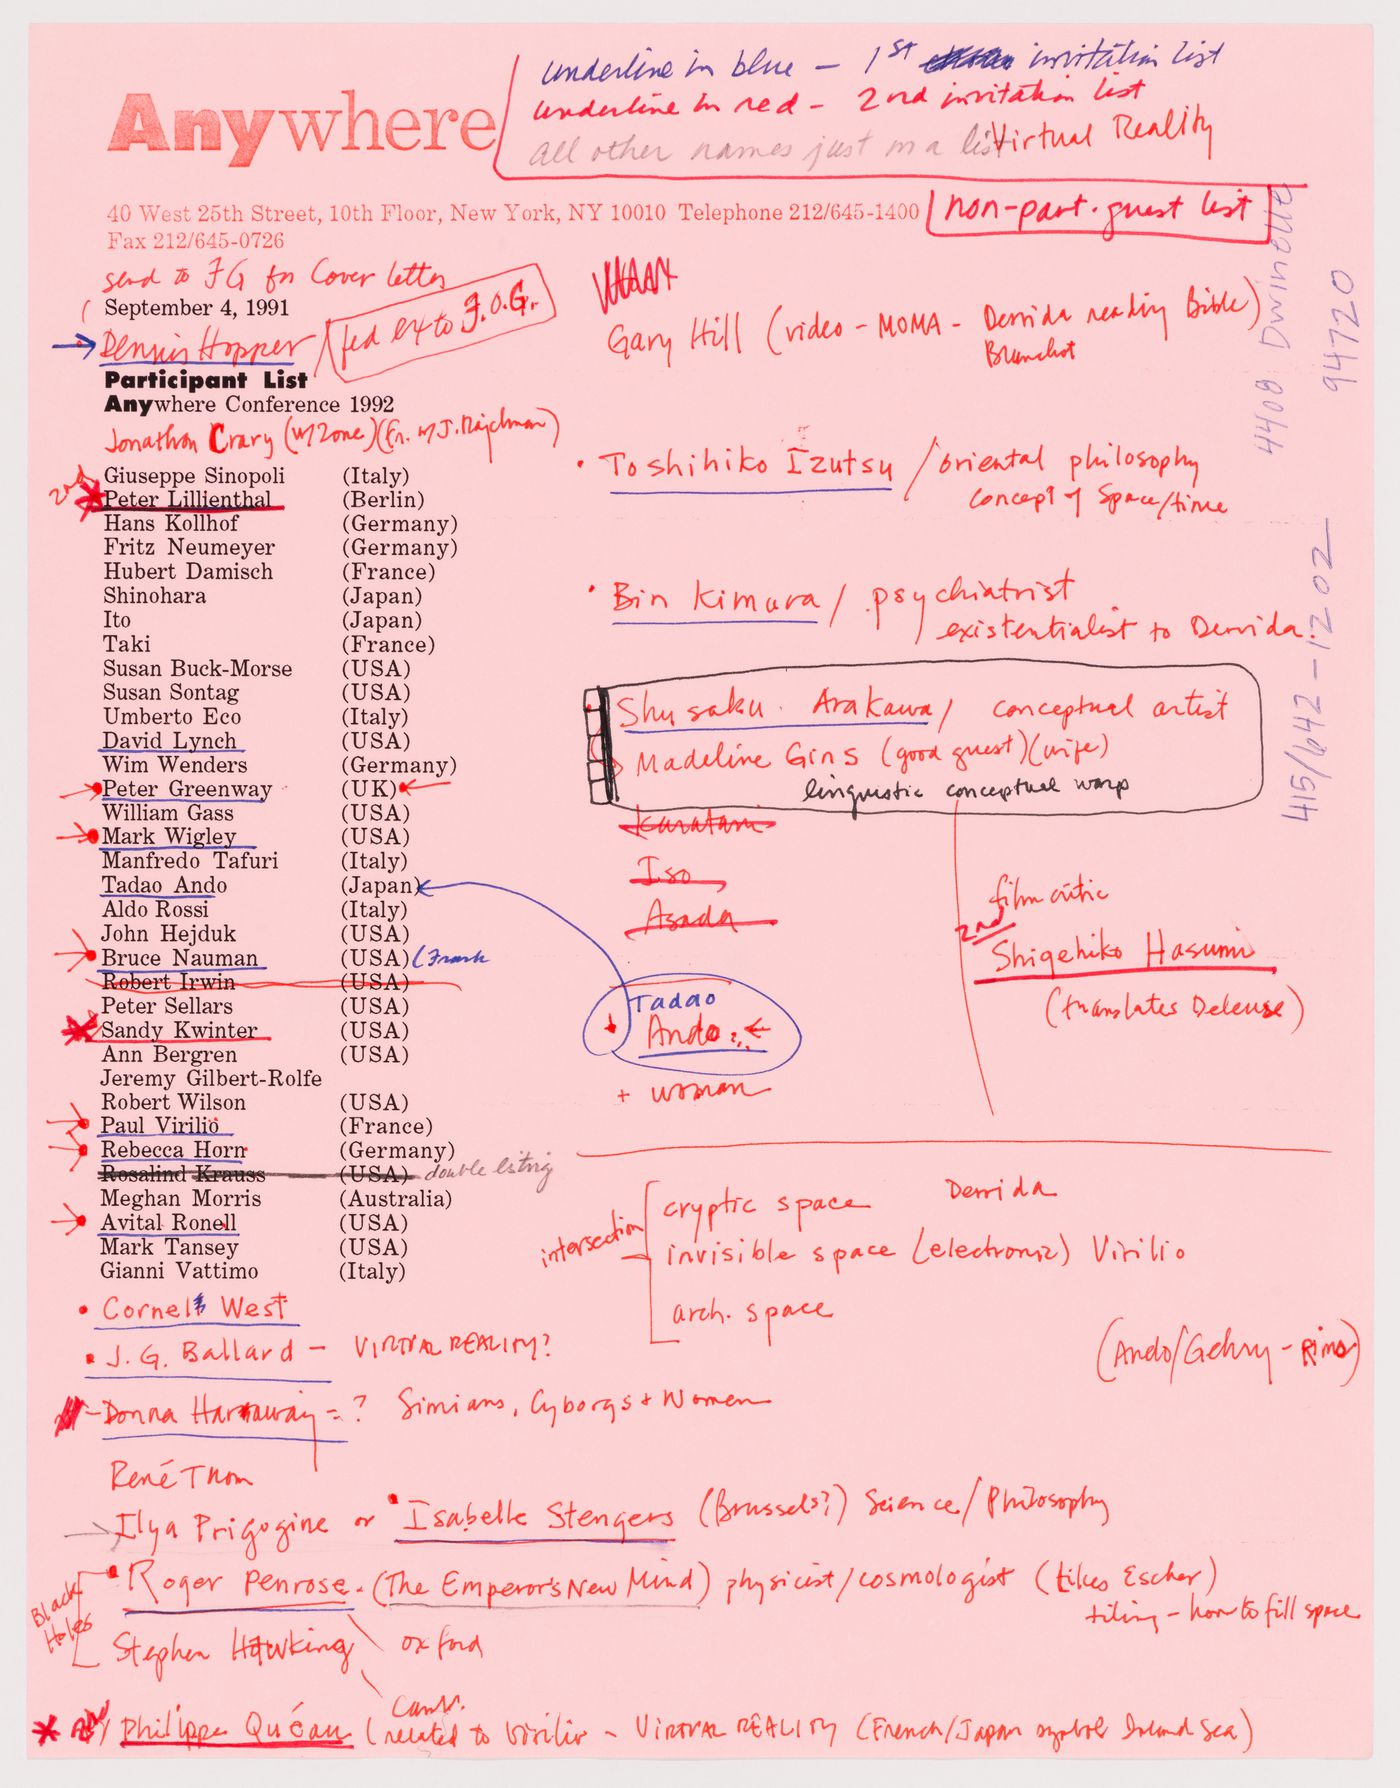 underline in blue – 1st invitation list
underline in red – 2nd invitation list
all other names just on a list
Virtual Reality
Anywhere
40 West 25th Street, 10th Floor, New York, NY 10010 Telephone 212/645-1400
Fax 212/645-0726
non-part. guest list
send to FG for Cover letter
September 4, 1991
Dennis Hopper
fed ex to F.O.G.
Participant List
Anywhere Conference 1992
Jonathon Crary (w/Zone) (Fr. w/J. Rajchman)
Giuseppe Sinopoli (Italy)
2nd Peter Lillienthal (Berlin)
Hans Kollhof (Germany)
Fritz Neumeyer (Germany)
Hubert Damisch (France)
Shinohara (Japan)
Ito (Japan)
Taki (France)
Susan Buck-Morse (USA)
Susan Sontag (USA)
Umberto Eco (Italy)
David Lynch (USA)
Wim Wenders (Germany)
Peter Greenway (UK)
William Gass (USA)
Mark Wigley (USA)
Manfredo Tafuri (Italy)
Tadao Ando (Japan)
Aldo Rossi (Italy)
John Hejduk (USA)
Bruce Nauman (USA) (Frank
Robert Irwin (USA)
Peter Sellars (USA)
Sandy Kwinter (USA)
Ann Bergren (USA)
Jeremy Gilbert-Rolfe
Robert Wilson (USA)
Paul Virilio (France)
Rebecca Horn (Germany)
Rosalind Krauss (USA) double listing
Meghan Morris (Australia)
Avital Ronell (USA)
Mark Tansey (USA)
Gianni Vattimo (Italy)
• Cornell West
• J. G. Ballard – VIRTUAL REALITY?
– Donna Harraway = ? Simians, Cyborgs + Women
René Thom
Ilya Prigogine or • Isabelle Stengers (Brussels?) Science/Philosophy
Black Holes
• Roger Penrose. (The Emperor's New Mind) physicist/cosmologist (likes Escher)
tiling – how to fill space
Stephen Hawking oxford
Camb.
2nd Philippe Quéau (related to Virilio – VIRTUAL REALITY (French/Japan symbol Island Sea)
Gary Hill (video – MOMA – Derrida reading Bible)
Blanchot
• Toshihiko Izutsu / oriental philosophy
concept of space/time
• Bin Kimura / psychiatrist
existentialist to Derrida.
Shusaku Arakawa / conceptual artist
Madeline Gins (good guest) (wife)
linguistic conceptual warp
Karatani
Iso
Asada
Tadao
Ando
+ woman
film critic
2nd
Shigehiko Hasumi
(translates Deleuse)
intersection
cryptic space Derrida
invisible space (electronic) Virilio
arch. space
(Ando/Gehry –
4408 Dwinelle
94720
415/642-1202